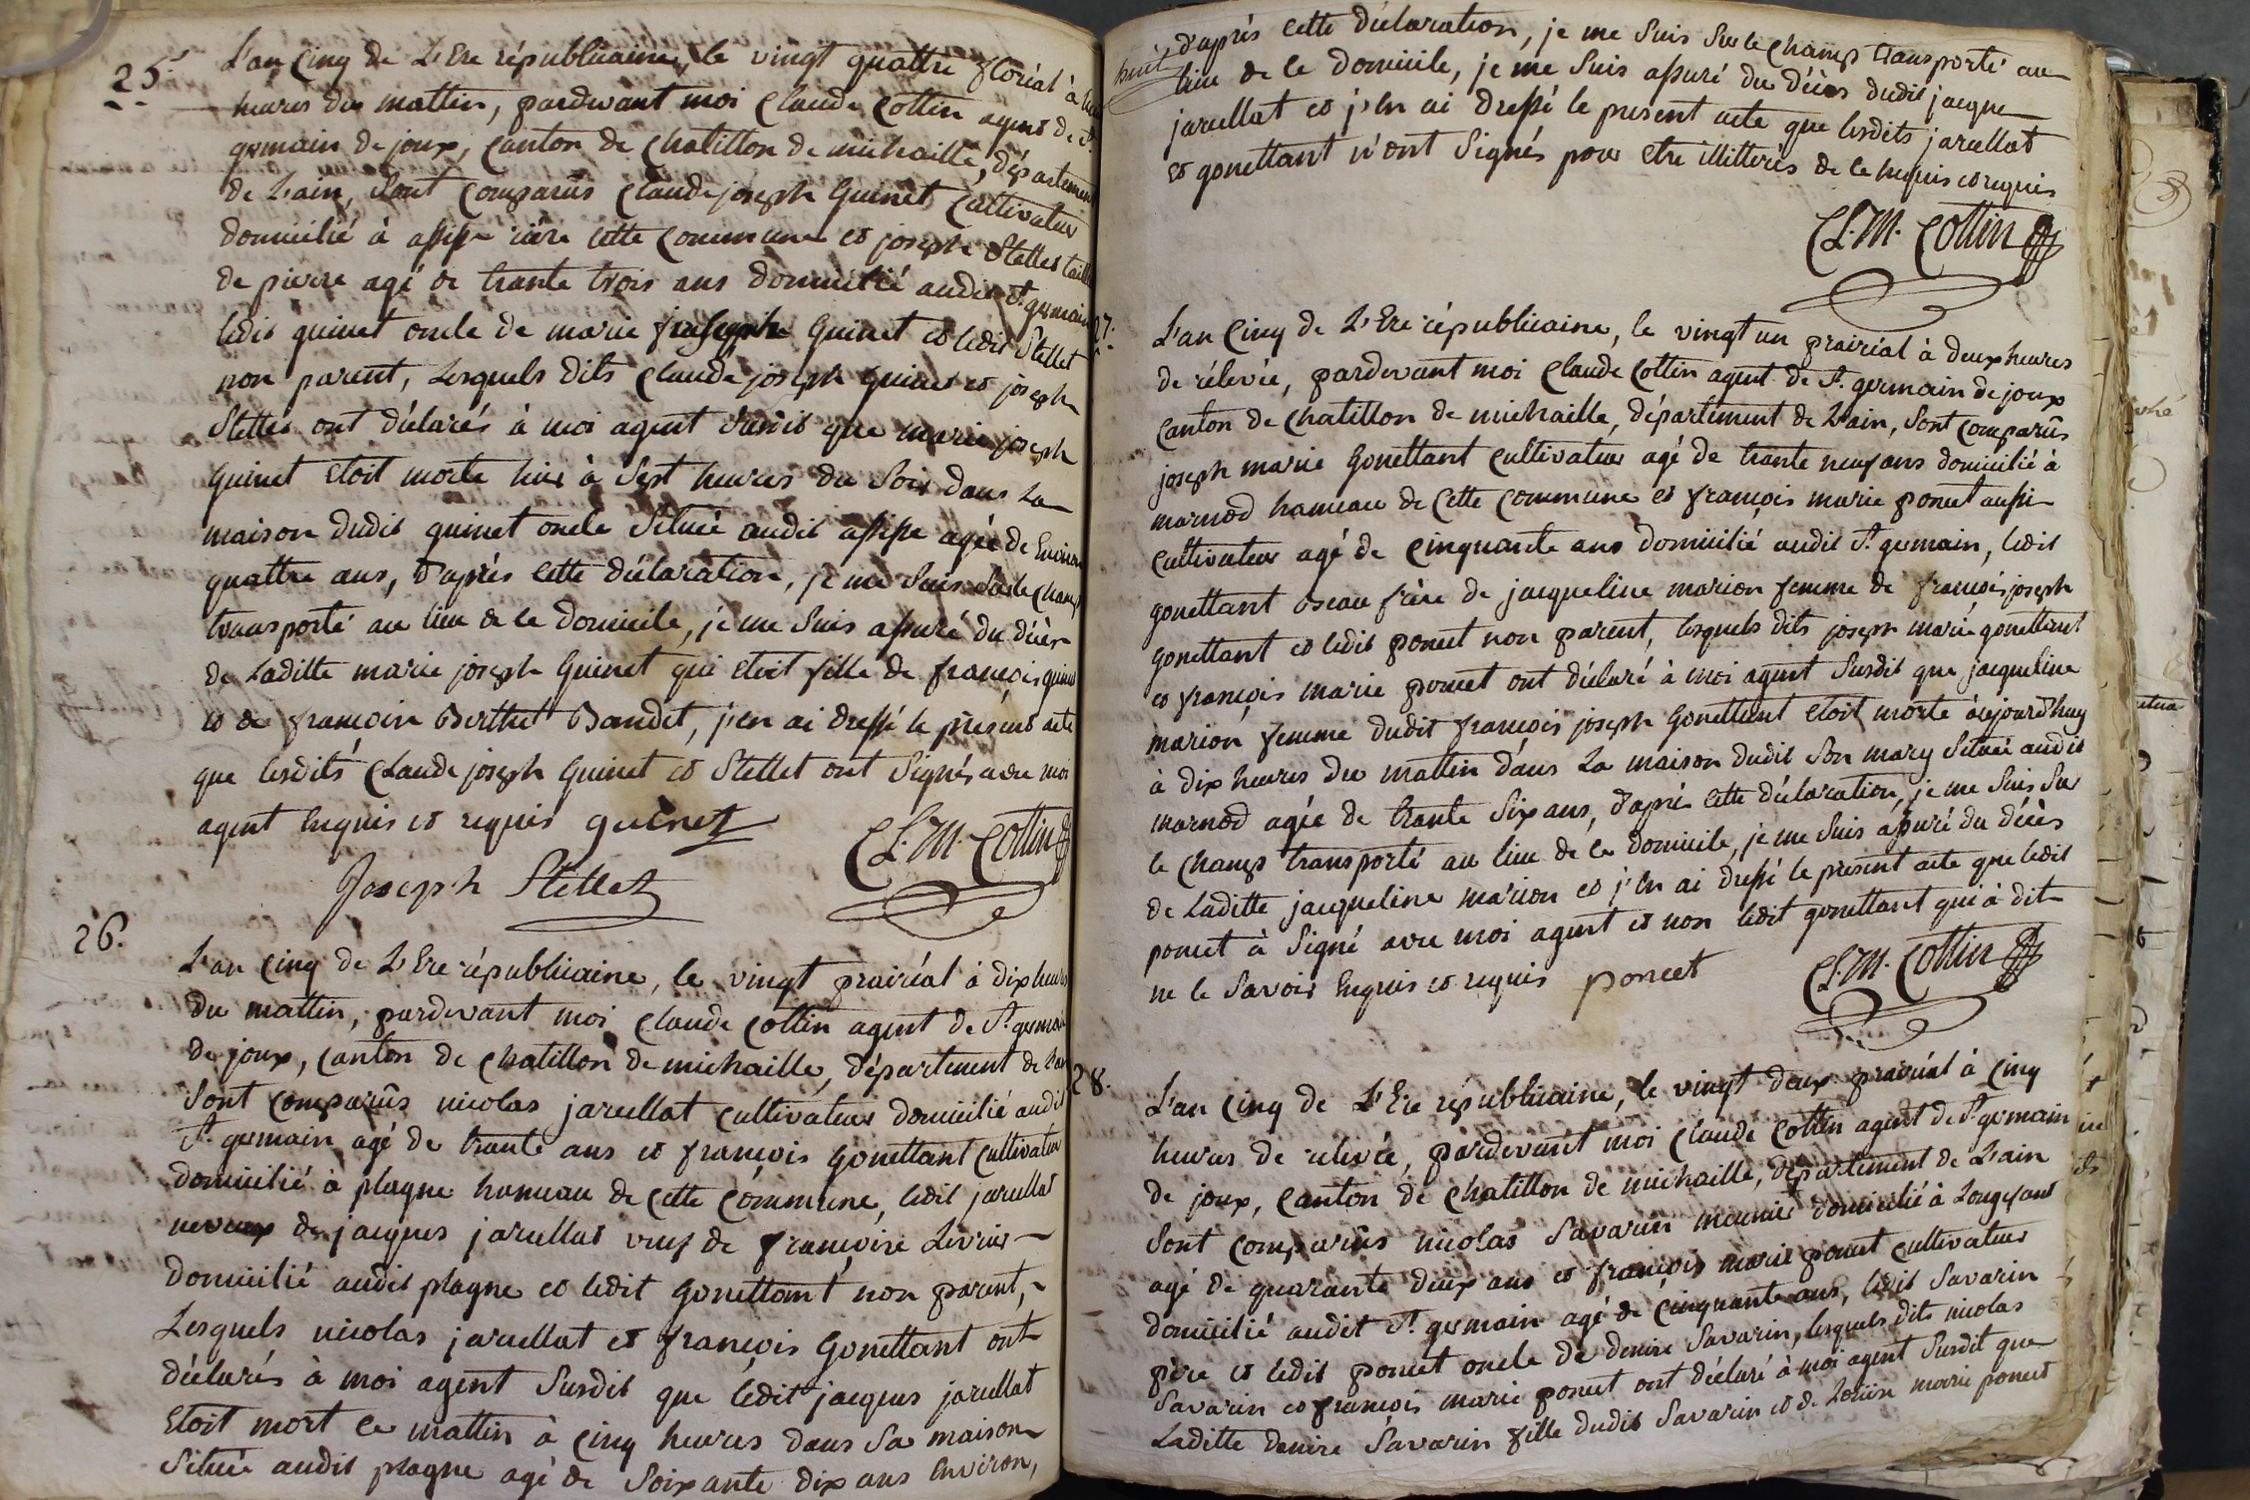 25.
L'an Cinq de L'Ere républicaine, le vingt quattre floréal à huit
heures du mattin, pardevant moi Claude Cottin agent de St.
germain de joux, Canton de Chatillon de michaille, département
de L'ain, Sont Comparus Claude joseph Guinet Cultivateur
domicilié à assise rière cette Commune et joseph Stellet tailleur
de pierre agé de trante trois ans domicilié audit St. germain
ledit guinet oncle de marie joseph Guinet et ledit Stellet
non parent, Lesquels dits Claude joseph guinet et joseph
Stellet ont déclarés à moi agent susdit que marie joseph
Guinet etoit morte hier à Sept heures du Soir dans La
maison dudit guinet oncle Située audit assise agée de Environ
quattre ans, d'après cette déclaration, je me Suis Sur le Champ
transporté au lieu de ce domicile, je me Suis assuré du décès
de Laditte marie joseph Guinet qui etoit fille de françois guinet
et de françoise Berthet Bandet, j'en ai dressé le présent acte
que lesdits Claude joseph Guinet et Stellet ont Signés avec moi
agent Enquis et requis guinet
Cl. M. Cottin
Joseph Stellet
26.
L'an Cinq de L'Ere républicaine, le vingt prairéal à dix heures
du mattin, pardevant moi Claude Cottin agent de St. germain
de joux, Canton de Chatillon de michaille, département de L'ain
Sont Comparus nicolas jarullat Cultivateur domicilié audit
St. germain agé de trante ans et françois Gonettant Cultivateur
domicilié à plagne hameau de Cette Commune, ledit jarullat
neveux de jacques jarullat veuf de françoise Livrier
domicilié audit plagne et ledit Gonettant non parent,
Lesquels nicolas jarullat et françois Gonettant ont
déclarés à moi agent Susdit que ledit jacques jarullat
Etoit mort ce mattin à Cinq heures dans Sa maison
Située audit plagne agé de Soixante dix ans Environ,
huit
d'après cette déclaration, je me Suis Sur le Champ transporté au
lieu de ce domicile, je me Suis assuré du décès dudit jacque
jarullat et j'en ai dressé le present acte que lesdits jarullat
et gonettant n'ont Signés pour etre illitterés de ce Enquis et requis
Cl. M. Cottin
27.
L'an Cinq de L'Ere républicaine, le vingt un prairial à deux heures
de rélevée, pardevant moi Claude Cottin agent de St. germain de joux
Canton de Chatillon de michaille, département de L'ain, Sont Comparus
joseph marie Gonettant Cultivateur agé de trante neuf ans domicilié à
marnod hameau de Cette Commune et françois marie poncet aussi
Cultivateur agé de Cinquante ans domicilié audit St. germain, ledit
gonettant beau frère de jacqueline marion femme de françois joseph
Gonettant et ledit poncet non parent, lesquels dits joseph marie gonettant
et françois marie poncet ont déclaré à moi agent Susdit que jacqueline
marion femme dudit françois joseph Gonettant etoit morte aujourd'huy
à dix heures du mattin dans La maison dudit Son mary Située audit
marnod agée de trante Six ans, d'après cette déclaration, je me Suis Sur
le Champ transporté au lieu de ce domicile, je me Suis assuré du décès
de Laditte jacqueline marion et j'en ai dressé le present acte que ledit
poncet à Signé avec moi agent et non ledit gonettant qui à dit
ne le Savoir Enquis et requis poncet
Cl. M. Cottin
28.
L'an Cinq de L'Ere républicaine, le vingt deux prairial à Cinq
heures de relevée, pardevant moi Claude Cottin agent de St. germain
de joux, Canton de Chatillon de michaille, département de L'ain
Sont Comparus nicolas Savarin meunier domicilié à Longefand
agé de quarante deux ans et françois marie poncet Cultivateur
domicilié audit St. germain agé de Cinquante ans, ledit Savarin
père et ledit poncet oncle de denise Savarin, lesquels dits nicolas
Savarin et françois marie poncet ont déclaré à moi agent Susdit que
Laditte denise Savarin fille dudit Savarin et de Louise marie poncet